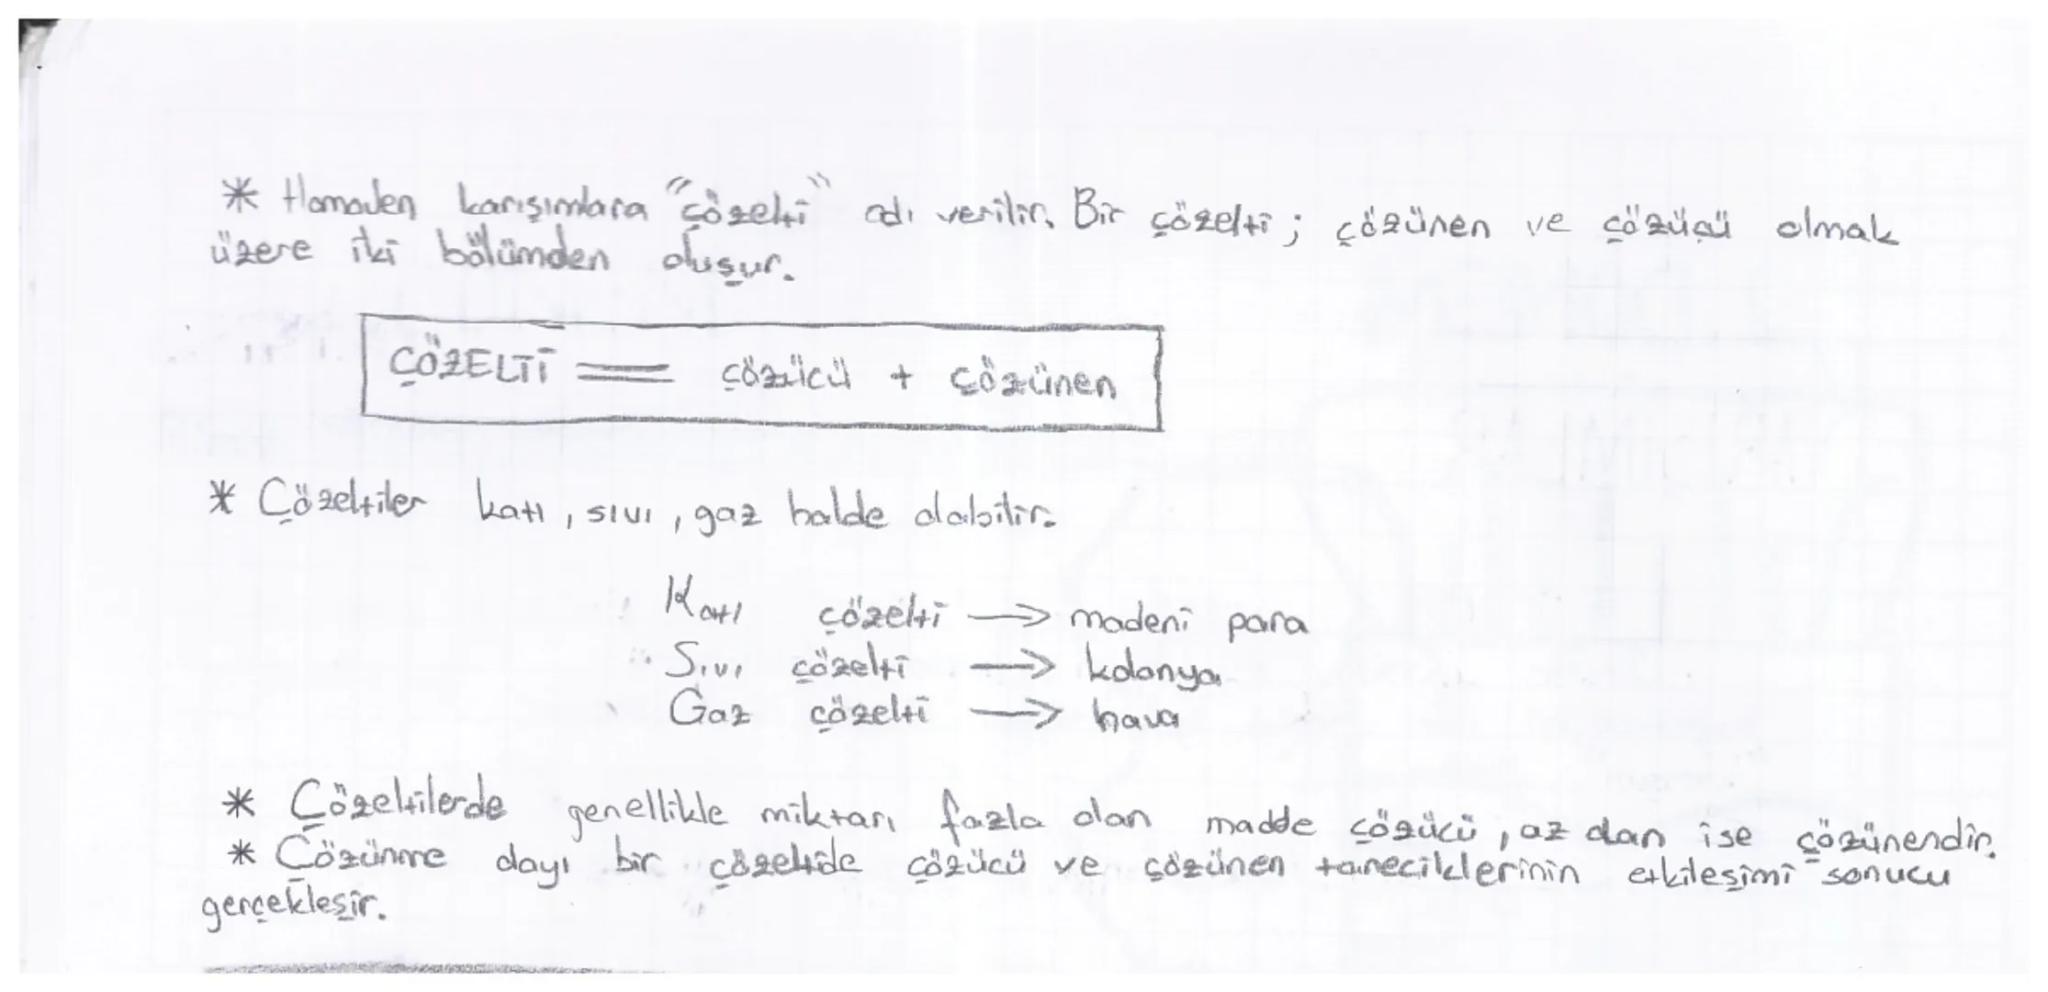 * Homojen karışımlara "çözelti" adı verilir. Bir çözelti; çözünen ve çözücü olmak
üzere iki bölümden oluşur.
ÇÖZELTİ = çözücü + çözünen
* Çözeltiler katı, sıvı, gaz halde olabilir.
Katı çözelti → madeni para
Sıvı çözelti → kolonya
Gaz çözelti → hava
* Çözeltilerde genellikle miktarı fazla olan madde çözücü, az olan ise çözünendir.
* Çözünme olayı bir çözeltide çözücü ve çözünen taneciklerinin etkileşimi sonucu
gerçekleşir.